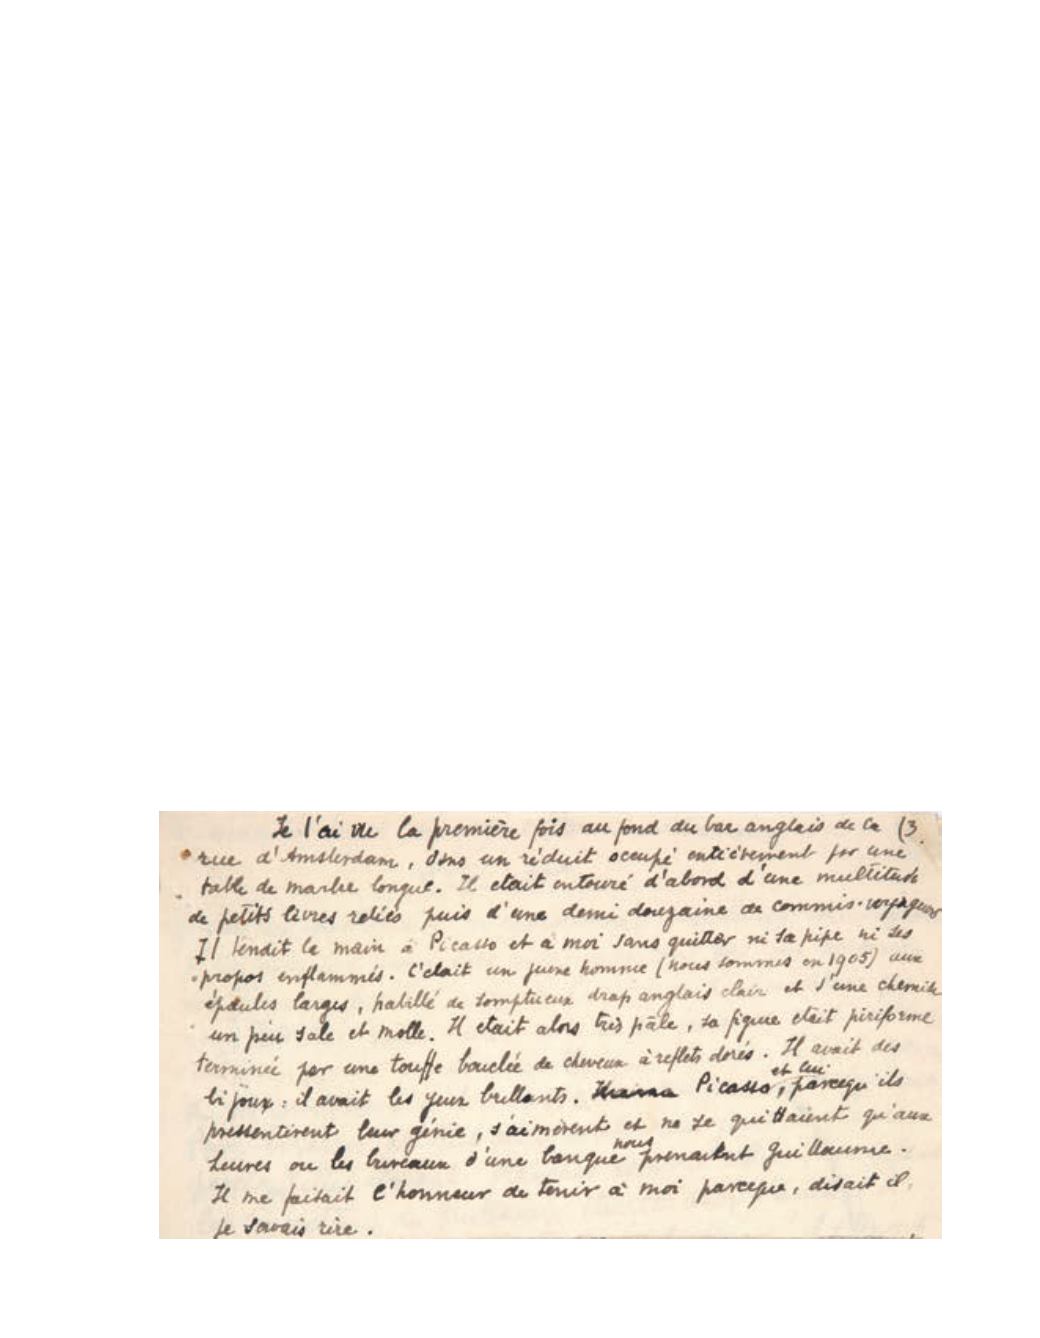 Je l'ai vu la première fois au fond du bar anglais de la (3
rue d'Amsterdam, dans un réduit occupé entièrement par une
table de marbre longue. Il etait entouré d'abord d'une multitude
de petits livres reliés puis d'une demi douzaine de commis-voyageurs
Il tendit la main à Picasso et à moi sans quitter ni sa pipe ni ses
propos enflammés. C'était un jeune homme (nous sommes en 1905) aux
épaules larges, habillé de somptueux drap anglais clair et d'une chemise
un peu sale et molle. Il etait alors très pâle, sa figure etait piriforme
terminée par une touffe bouclée de cheveux à reflets dorés. Il avait des
bijoux : il avait les yeux brillants. Picasso et lui, parcequ'ils
pressentirent leur génie, s'aimèrent et ne se quittaient qu'aux
heures ou les bureaux d'une banque nous prenaient Guillaume.
Il me faisait l'honneur de tenir à moi parceque, disait il,
je savais rire.